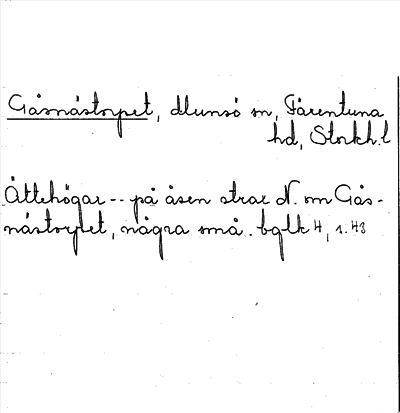 Gåsnästorpet, Munsö sn, Färentuna
hd, Stockh. l
Ättehögar -- på åsen strax N. om Gås-
nästorpet, några små.. bglk 4, s. 43